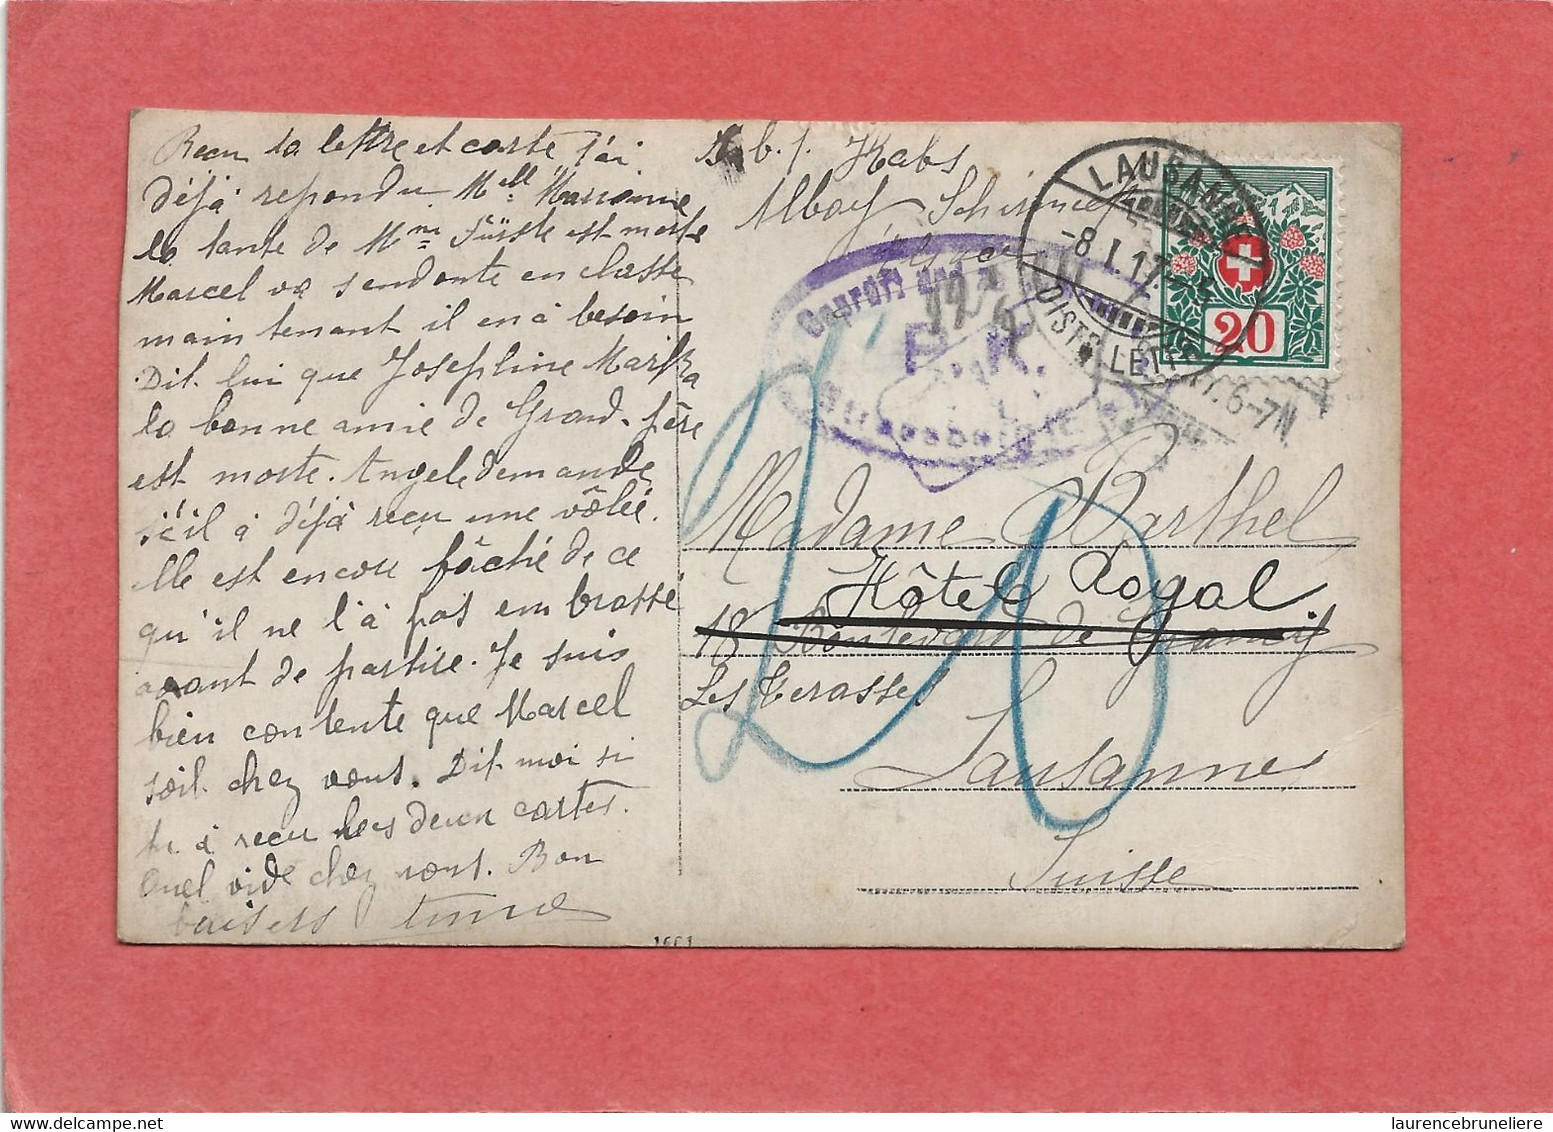 Recu ta lettre et carte j'ai
déjà repondu. Melle Marianne
la tante de Mme Fürste est morte
Marcel va sendoute en classe
maintenant il en à besoin
Dit. lui que Josephine
la bonne amie de Grand-père
est morte. Angele demande
s'éil à déjà recu une vôlée.
Elle est encore fâché de ce
qu'il ne l'à pas embrassé
avant de partire. Je suis
bien contente que Marcel
soit chez vous. Dit moi si
tu à recu les deux cartes.
Quel vide chez nous. Bon
baisers
Abs. J. Kabs
Elsace
Geprüft und zu
P.K.
Strassburg i. E.
LAUSANNE
-8.I.17.-5
DISTR. LETT.
20
17.6-7N
20
Madame Barthel
Hôtel Royal
18 Boulevard de Grancy
Les Terasses
Lausanne
Suisse
laurencebruneliere